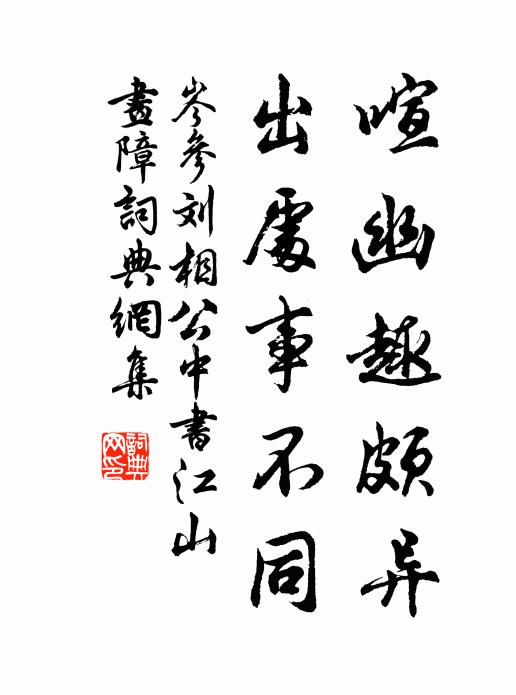 喧幽趣頗异
出處事不同
岑參刘相公中書江山
畫障詞典網集
詞典网印